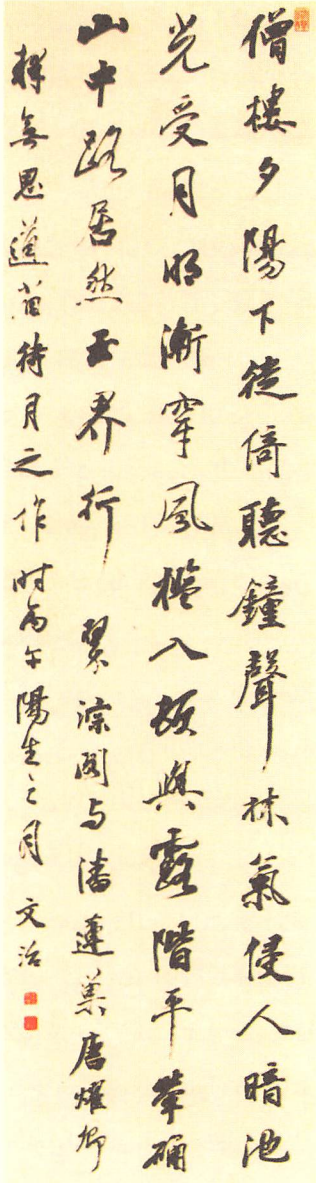 僧樓夕陽下徙倚聽鐘聲林氣侵人暗池
光受月明漸穿風檻入頓與露階平犖确
山中路居然玉界行 翠淙閣与潘蓮巢唐耀卿
釋無思待月之作時丙午陽生之月 文治